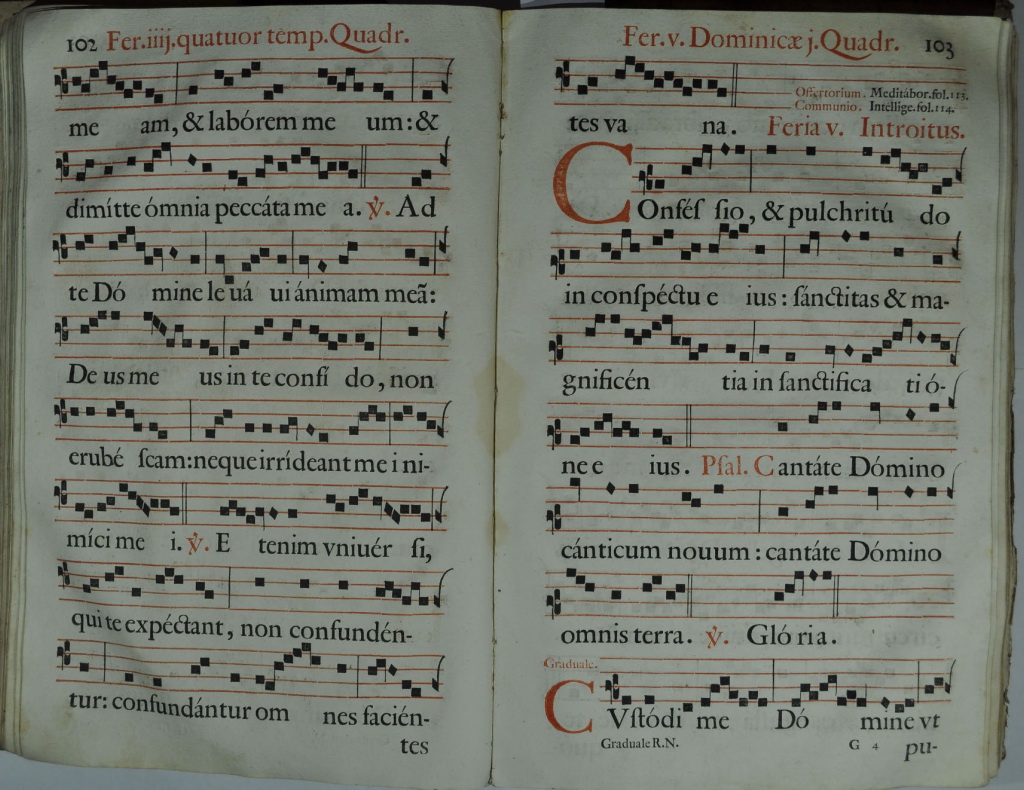 102 Fer.iiij.quatuor temp.Quadr.
me am, & labórem me um: &
dimítte ómnia peccáta me a. ℣. Ad
te Dó mine le uá ui ánimam meã:
De us me us in te confí do, non
erubé ſcam: neque irrídeant me i ni-
míci me i. ℣. E tenim vniuér ſi,
qui te expéctant, non confundén-
tur: confundántur om nes facién-
tes
Fer. v. Dominicæ j. Quadr. 103
Offertorium. Meditábor. fol. 113.
Communio. Intéllige. fol. 114.
tes va na. Feria v. Introitus.
COnféſ ſio, & pulchritú do
in conſpéctu e ius: ſánctitas & ma-
gnificén tia in ſanctifica ti ó-
ne e ius. Pſal. Cantáte Dómino
cánticum nouum: cantáte Dómino
omnis terra. ℣. Gló ria.
Graduale.
CVſtódi me Dó mine vt
Graduale R.N. G 4 pu-